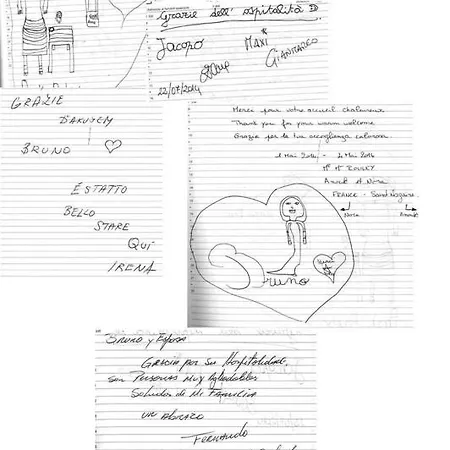 Grazie dell'ospitalità
Jacopo
MAXI
GIANMARCO
22/07/2014
GRAZIE
BRUNO
È STATTO
BELLO
STARE
QUI
IRENA
Merci pour votre accueil chaleureux
Thank you for your warm welcome
Grazie per la tua accoglienza calorosa.
2 Mai 2014 - 4 Mai 2014
Mr ROULEY
et Nora
FRANCE - Saint Nazaire
Nora
Bruno
BRUNO y Esposa
GRACIA por su Hospitalidad.
son Personas muy Agradables
Saludos de Mi FAMILIA
UN ABRAZO
FERNANDO